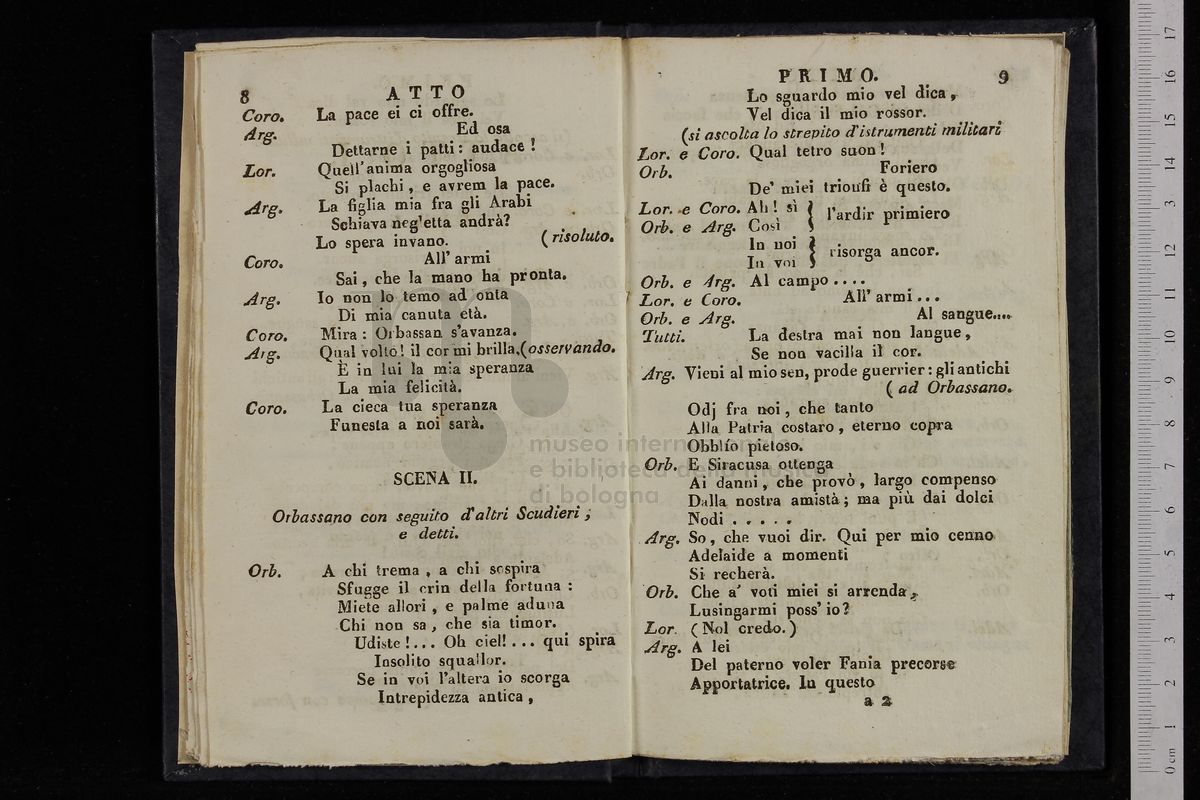 8 ATTO
Coro. La pace ei ci offre.
Arg. Ed osa
Dettarne i patti: audace!
Lor. Quell'anima orgogliosa
Si plachi, e avrem la pace.
Arg. La figlia mia fra gli Arabi
Schiava neg'etta andrà?
Lo spera invano. (risoluto.
Coro. All' armi
Sai, che la mano ha pronta.
Arg. Io non lo temo ad onta
Di mia canuta età.
Coro. Mira: Orbassan s'avanza.
Arg. Qual volto! il cor mi brilla.(osservando.
È in lui la mia speranza
La mia felicità.
Coro. La cieca tua speranza
Funesta a noi sarà.
SCENA II.
Orbassano con seguito d'altri Scudieri;
e detti.
Orb. A chi trema, a chi sospira
Sfugge il crin della fortuna:
Miete allori, e palme aduna
Chi non sa, che sia timor.
Udiste!... Oh ciel!... qui spira
Insolito squallor.
Se in voi l'altera io scorga
Intrepidezza antica,
PRIMO. 9
Lo sguardo mio vel dica,
Vel dica il mio rossor.
(si ascolta lo strepito d'istrumenti militari
Lor. e Coro. Qual tetro suon!
Orb. Foriero
De' miei trionfi è questo.
Lor. e Coro. Ah! sì } l'ardir primiero
Orb. e Arg. Così
In noi } risorga ancor.
In voi
Orb. e Arg. Al campo....
Lor. e Coro. All' armi...
Orb. e Arg. Al sangue....
Tutti. La destra mai non langue,
Se non vacilla il cor.
Arg. Vieni al mio sen, prode guerrier: gli antichi
( ad Orbassano.
Odj fra noi, che tanto
Alla Patria costaro, eterno copra
Obblío pietoso.
Orb. E Siracusa ottenga
Ai danni, che provò, largo compenso
Dalla nostra amistà; ma più dai dolci
Nodi.....
Arg. So, che vuoi dir. Qui per mio cenno
Adelaide a momenti
Si recherà.
Orb. Che a' voti miei si arrenda,
Lusingarmi poss' io?
Lor. (Nol credo.)
Arg. A lei
Del paterno voler Fania precorse
Apportatrice. In questo
a 2
museo internazionale
e biblioteca della musica
di bologna
0 cm 1 2 3 4 5 6 7 8 9 10 11 12 13 14 15 16 17